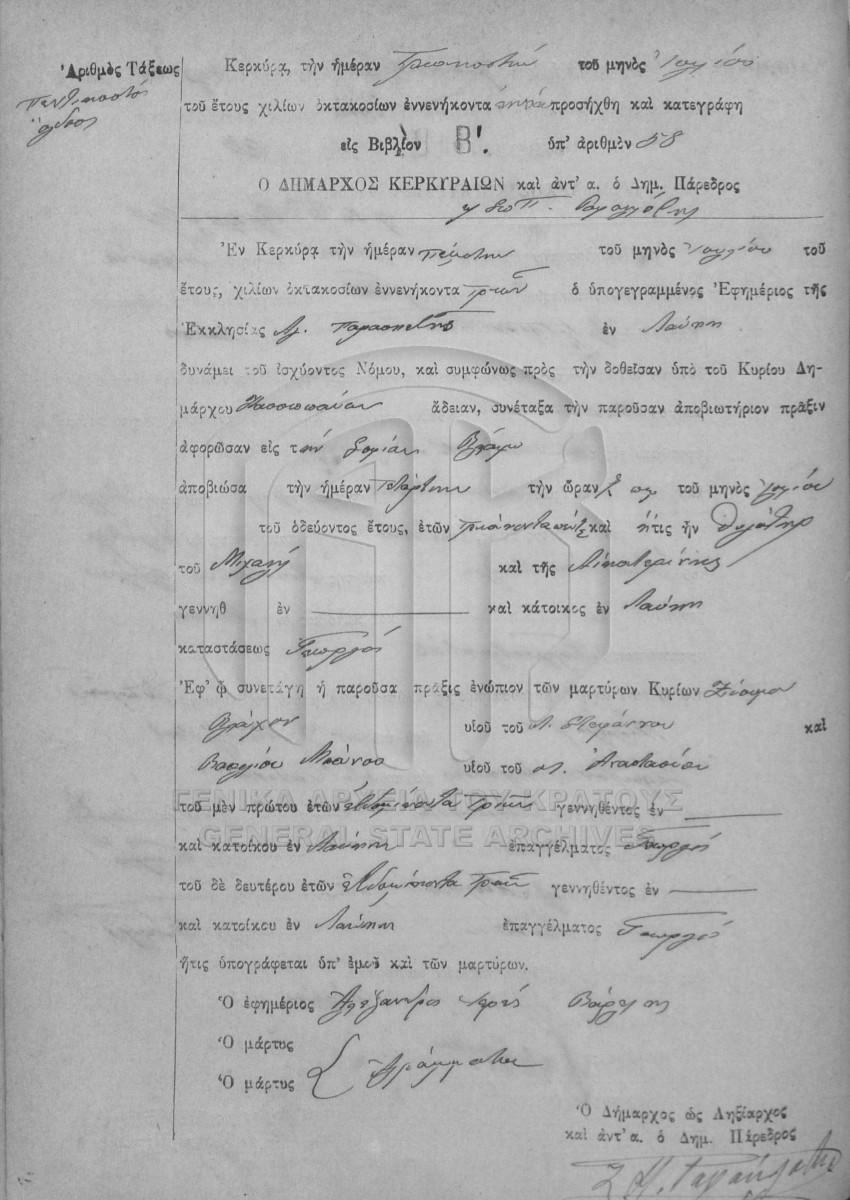 Ἀριθμὸς Τάξεως
πεντηκοστὸς
ὄγδοος
Κερκύρᾳ, τὴν ἡμέραν τριακοστὴν τοῦ μηνὸς Ἰουλίου
τοῦ ἔτους χιλίων ὀκτακοσίων ἐννενήκοντα προσήχθη καὶ κατεγράφη
εἰς Βιβλίον Β'. ὑπ' ἀριθμὸν 58
Ο ΔΗΜΑΡΧΟΣ ΚΕΡΚΥΡΑΙΩΝ καὶ ἀντ' α. ὁ Δημ. Πάρεδρος
Ἐν Κερκύρᾳ τὴν ἡμέραν πέμπτην τοῦ μηνὸς Ἰουλίου τοῦ
ἔτους, χιλίων ὀκτακοσίων ἐννενήκοντα τριῶν ὁ ὑπογεγραμμένος Ἐφημέριος τῆς
Ἐκκλησίας Ἁγ. Παρασκευῆς ἐν Λαύκῃ
δυνάμει τοῦ ἰσχύοντος Νόμου, καὶ συμφώνως πρὸς τὴν δοθεῖσαν ὑπὸ τοῦ Κυρίου Δη-
μάρχου Κασσωπαίων ἄδειαν, συνέταξα τὴν παροῦσαν ἀποβιωτήριον πρᾶξιν
ἀφορῶσαν εἰς τὴν Σοφίαν Βλάχου
ἀποβιώσα τὴν ἡμέραν τετάρτην τὴν ὥραν τοῦ μηνὸς Ἰουλίου
τοῦ ὁδεύοντος ἔτους, ἐτῶν τριάκοντα πέντε καὶ ἥτις ἦν θυγάτηρ
τοῦ Μιχαὴλ καὶ τῆς Αἰκατερίνης
γεννηθ ἐν καὶ κάτοικος ἐν Λαύκῃ
καταστάσεως Γεωργός
Ἐφ' ᾧ συνετάγη ἡ παροῦσα πρᾶξις ἐνώπιον τῶν μαρτύρων Κυρίων
Βλάχου υἱοῦ τοῦ Στεφάνου καὶ
Βασιλίου υἱοῦ τοῦ Ἀναστασίου
τοῦ μὲν πρώτου ἐτῶν ἑβδομήκοντα τριῶν γεννηθέντος ἐν
καὶ κατοίκου ἐν Λαύκῃ ἐπαγγέλματος Γεωργός
τοῦ δὲ δευτέρου ἐτῶν ἑβδομήκοντα τριῶν γεννηθέντος ἐν
καὶ κατοίκου ἐν Λαύκῃ ἐπαγγέλματος Γεωργός
ἥτις ὑπογράφεται ὑπ' ἐμοῦ καὶ τῶν μαρτύρων.
Ὁ ἐφημέριος Ἀλέξανδρος Ἱερεὺς
Ὁ μάρτυς
Ὁ μάρτυς ἀγράμματοι
Ὁ Δήμαρχος ὡς Ληξίαρχος
καὶ ἀντ' α. ὁ Δημ. Πάρεδρος
ΓΕΝΙΚΑ ΑΡΧΕΙΑ ΤΟΥ ΚΡΑΤΟΥΣ
GENERAL STATE ARCHIVES